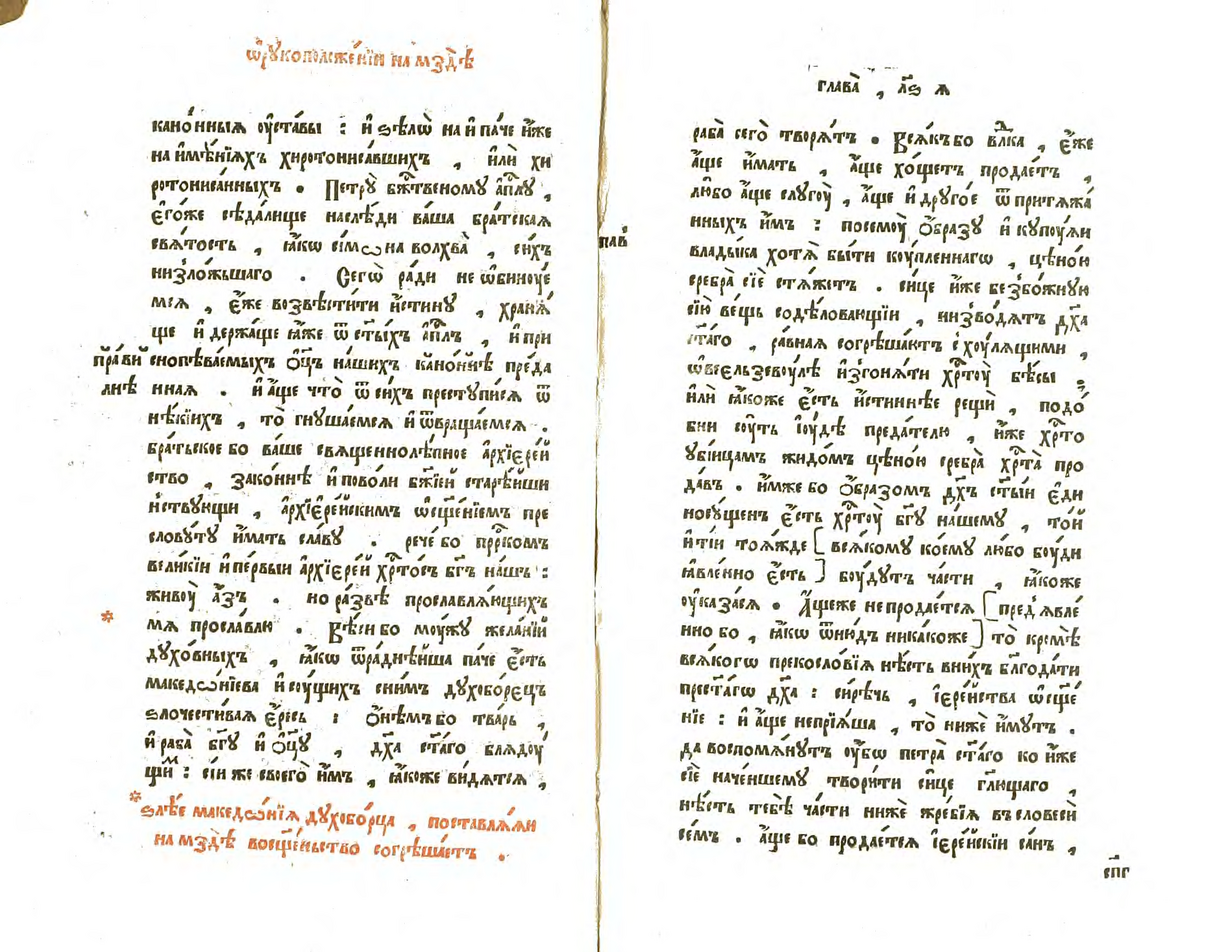 ѿрꙋкоположе́нїи на мздѣ̀
кано́нныѧ ᲂу҆ста́вы : и҆ ѕѣлѡ̀ на и҆ па́че и҆́же
на и҆мѣ́нїѧхъ хиротониса́вшихъ , и҆лѝ хи
ротониса́нныхъ . Петрꙋ̀ бж҃твеномꙋ а҆пⷭ҇лꙋ ,
є҆го́же сѣда́лище наслѣ́ди ва́ша бра́тскаѧ
свѧ́тость , ꙗ҆́кѡ си́мѡна волхва̀ , си́хъ
низло́жьшаго . Сегѡ̀ ра́ди не ѡ҆бинꙋ́е
мсѧ , є҆́же возвѣсти́ти и҆́стинꙋ , хранѧ́
ще и҆ держа́ще ꙗ҆́же ѿ ст҃ы́хъ а҆пⷭ҇лъ , и҆ при
снопѣва́емыхъ ѻ҆ц҃ъ на́шихъ кано́ннѣ преда
пра́ви
лнѣ
и́ннаѧ . и҆ а҆́ще что̀ ѿ си́хъ престꙋпи́сѧ ѿ
нѣ́кїихъ , то̀ гнꙋша́емсѧ и҆ ѿвраща́емсѧ .
бра́тьское бо ва́ше свѧщеннолѣ́пное а҆рхїере́й
ство , зако́ннѣ и҆ пово́ли бж҃їей старѣ́йши
нствꙋющи , а҆рхїере́йскимъ ѡ҆сщ҃е́нїемъ пре
словꙋ́тꙋ и҆́мать сла́вꙋ . рече́ бо прⷪ҇ркомъ
вели́кїи и҆ пе́рвыи а҆рхїере́й хрⷭ҇то́съ бг҃ъ на́шъ :
живꙋ̀ а҆́зъ . но ра́звѣ прославлѧ́ющихъ
* мѧ просла́влю . Вѣ́си бо мꙋ́жꙋ жела́нїй
дꙋхо́вныхъ , ꙗ҆́кѡ ѿра́днѣйша па́че є҆́сть
македѡ́нїева и҆ сꙋ́щихъ сни́мъ дꙋхобо́рецъ
ѕлочести́ваѧ є҆́ресь : ѻ҆нѣ́мъ бо тва́рь ,
и҆ раба̀ бг҃ꙋ и҆ ѻ҆ц҃ꙋ , дх҃а ст҃а́го блѧдꙋ́
щимъ : сі́и же своего̀ и҆̀мъ , ꙗ҆́коже ви́дѧтсѧ ,
* ѕлѣ́е македѡ́нїѧ дꙋхобо́рца , поставлѧ́ѧи
на мздѣ̀ восщ҃е́ньство согрѣша́етъ .
глава̀ , л҃ѕ ѧ
раба̀ сего̀ творѧ́тъ . Всѧ́къ бо влⷣка , є҆́же
а҆́ще и҆́мать , а҆́ще хо́щетъ продае́тъ ,
лю́бо а҆́ще слꙋгꙋ̀ , а҆́ще и҆ дрꙋго́е ѿ притѧжа́
нныхъ и҆́мъ : посемꙋ̀ ѻ҆́бразꙋ и҆ кꙋпꙋ́ѧи
влады́ка хотѧ̀ бы́ти кꙋ́пленнагѡ , цѣно́ю
сребра̀ сїѐ стѧ́жетъ . си́це и҆́же безбо́жнꙋю
сїю̀ ве́щь содѣ́ловающїи , низво́дѧтъ дх҃а
ст҃а́го , ра́внаѧ согрѣша́ютъ с хꙋ́лѧщими ,
ѡ҆ веельзевꙋ́лѣ и҆згонѧ́ти хрⷭ҇тꙋ̀ бѣ́сы
и҆лѝ ꙗ҆́коже є҆́сть и҆́стиннѣе рещѝ , подо́
бни сꙋ́ть і҆ꙋ́дѣ преда́телю , и҆́же хрⷭ҇та̀
ᲂу҆бі́йцамъ жидо́мъ цѣно́ю сребра̀ хрⷭ҇та̀ про
да́въ . и҆́мже бо ѻ҆́бразомъ дх҃ъ ст҃ы́и є҆ди
носꙋ́щенъ є҆́сть хрⷭ҇тꙋ̀ бг҃ꙋ на́шемꙋ , то́й
и҆ ті́и тоѧ́жде [ всѧ́комꙋ ко́емꙋ лю́бо бꙋ́ди
ꙗ҆вле́нно є҆́сть ] бꙋ́дꙋтъ ча́сти , ꙗ҆́коже
ᲂу҆каза́сѧ . А҆́щеже не продае́тсѧ [ пред̾ѧвле́
нно бо , ꙗ҆́кѡ ѿню́дъ ника́коже ] то̀ кро́мѣ
всѧ́когѡ прекосло́вїѧ нѣ́сть в ни́хъ блгⷣа́ти
прест҃а́гѡ дх҃а : си́рѣчь , і҆ере́йства ѡ҆сщ҃е́
нїе : и҆ а҆́ще непрїѧ́ша , то̀ нижѐ и҆́мꙋтъ .
да воспомѧнꙋ́тъ ᲂу҆́бѡ петра̀ ст҃а́го ко и҆́же
сїѐ наче́ншемꙋ твори́ти си́це гл҃ющаго ,
нѣ́сть тебѣ̀ ча́сти нижѐ жре́бїѧ въ словесѝ
се́мъ . а҆́ще бо продае́тсѧ і҆ере́йскїи са́нъ ,
спг